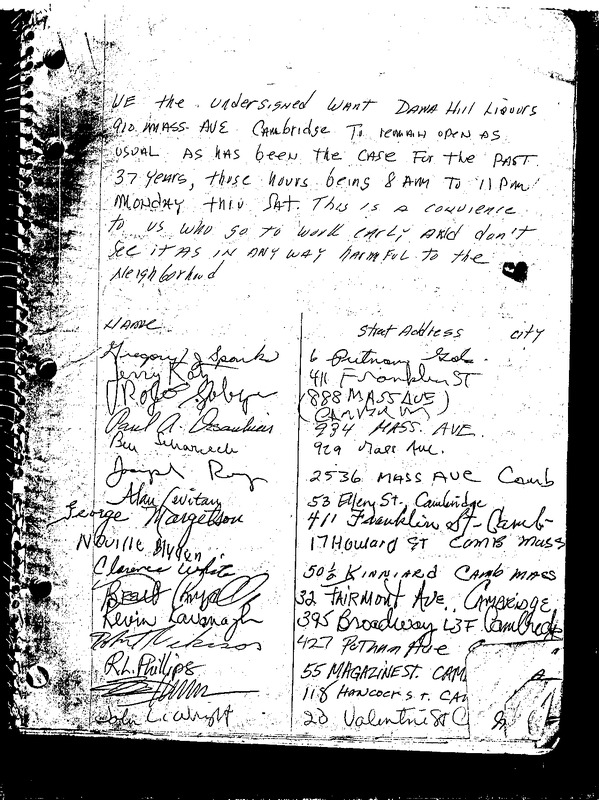 WE the undersigned want Dana Hill Liquors
910 Mass. Ave Cambridge To remain open as
usual as has been the case for the past
37 years, those hours being 8 AM To 11 PM
Monday thru Sat. This is a convience
to us who go to work early and don't
see it as in any way harmful to the
Neighborhood
NAME Street Address city
Gregory J Sparks 6 Putnam
Jerry Katz 411 Franklin ST
888 MASS AVE
Paul A. 934 MASS. AVE.
Ben 929 Mass Ave.
Joseph 2536 MASS AVE Camb
Alan Levitan 53 Ellery St. Cambridge
George Margetson 411 Franklin St. Camb
Neville Blyden 17 Howard ST CAMB MASS
Clarence White 50½ KINNIARD CAMB MASS
32 FAIRMONT AVE. CAMBRIDGE
Kevin Kavanagh 395 Broadway L3F Cambridge
Robert 427 Putnam Ave
R.L. Phillips 55 MAGAZINE ST. CAM
118 HANCOCK ST. CA
John 20 Valentine St C